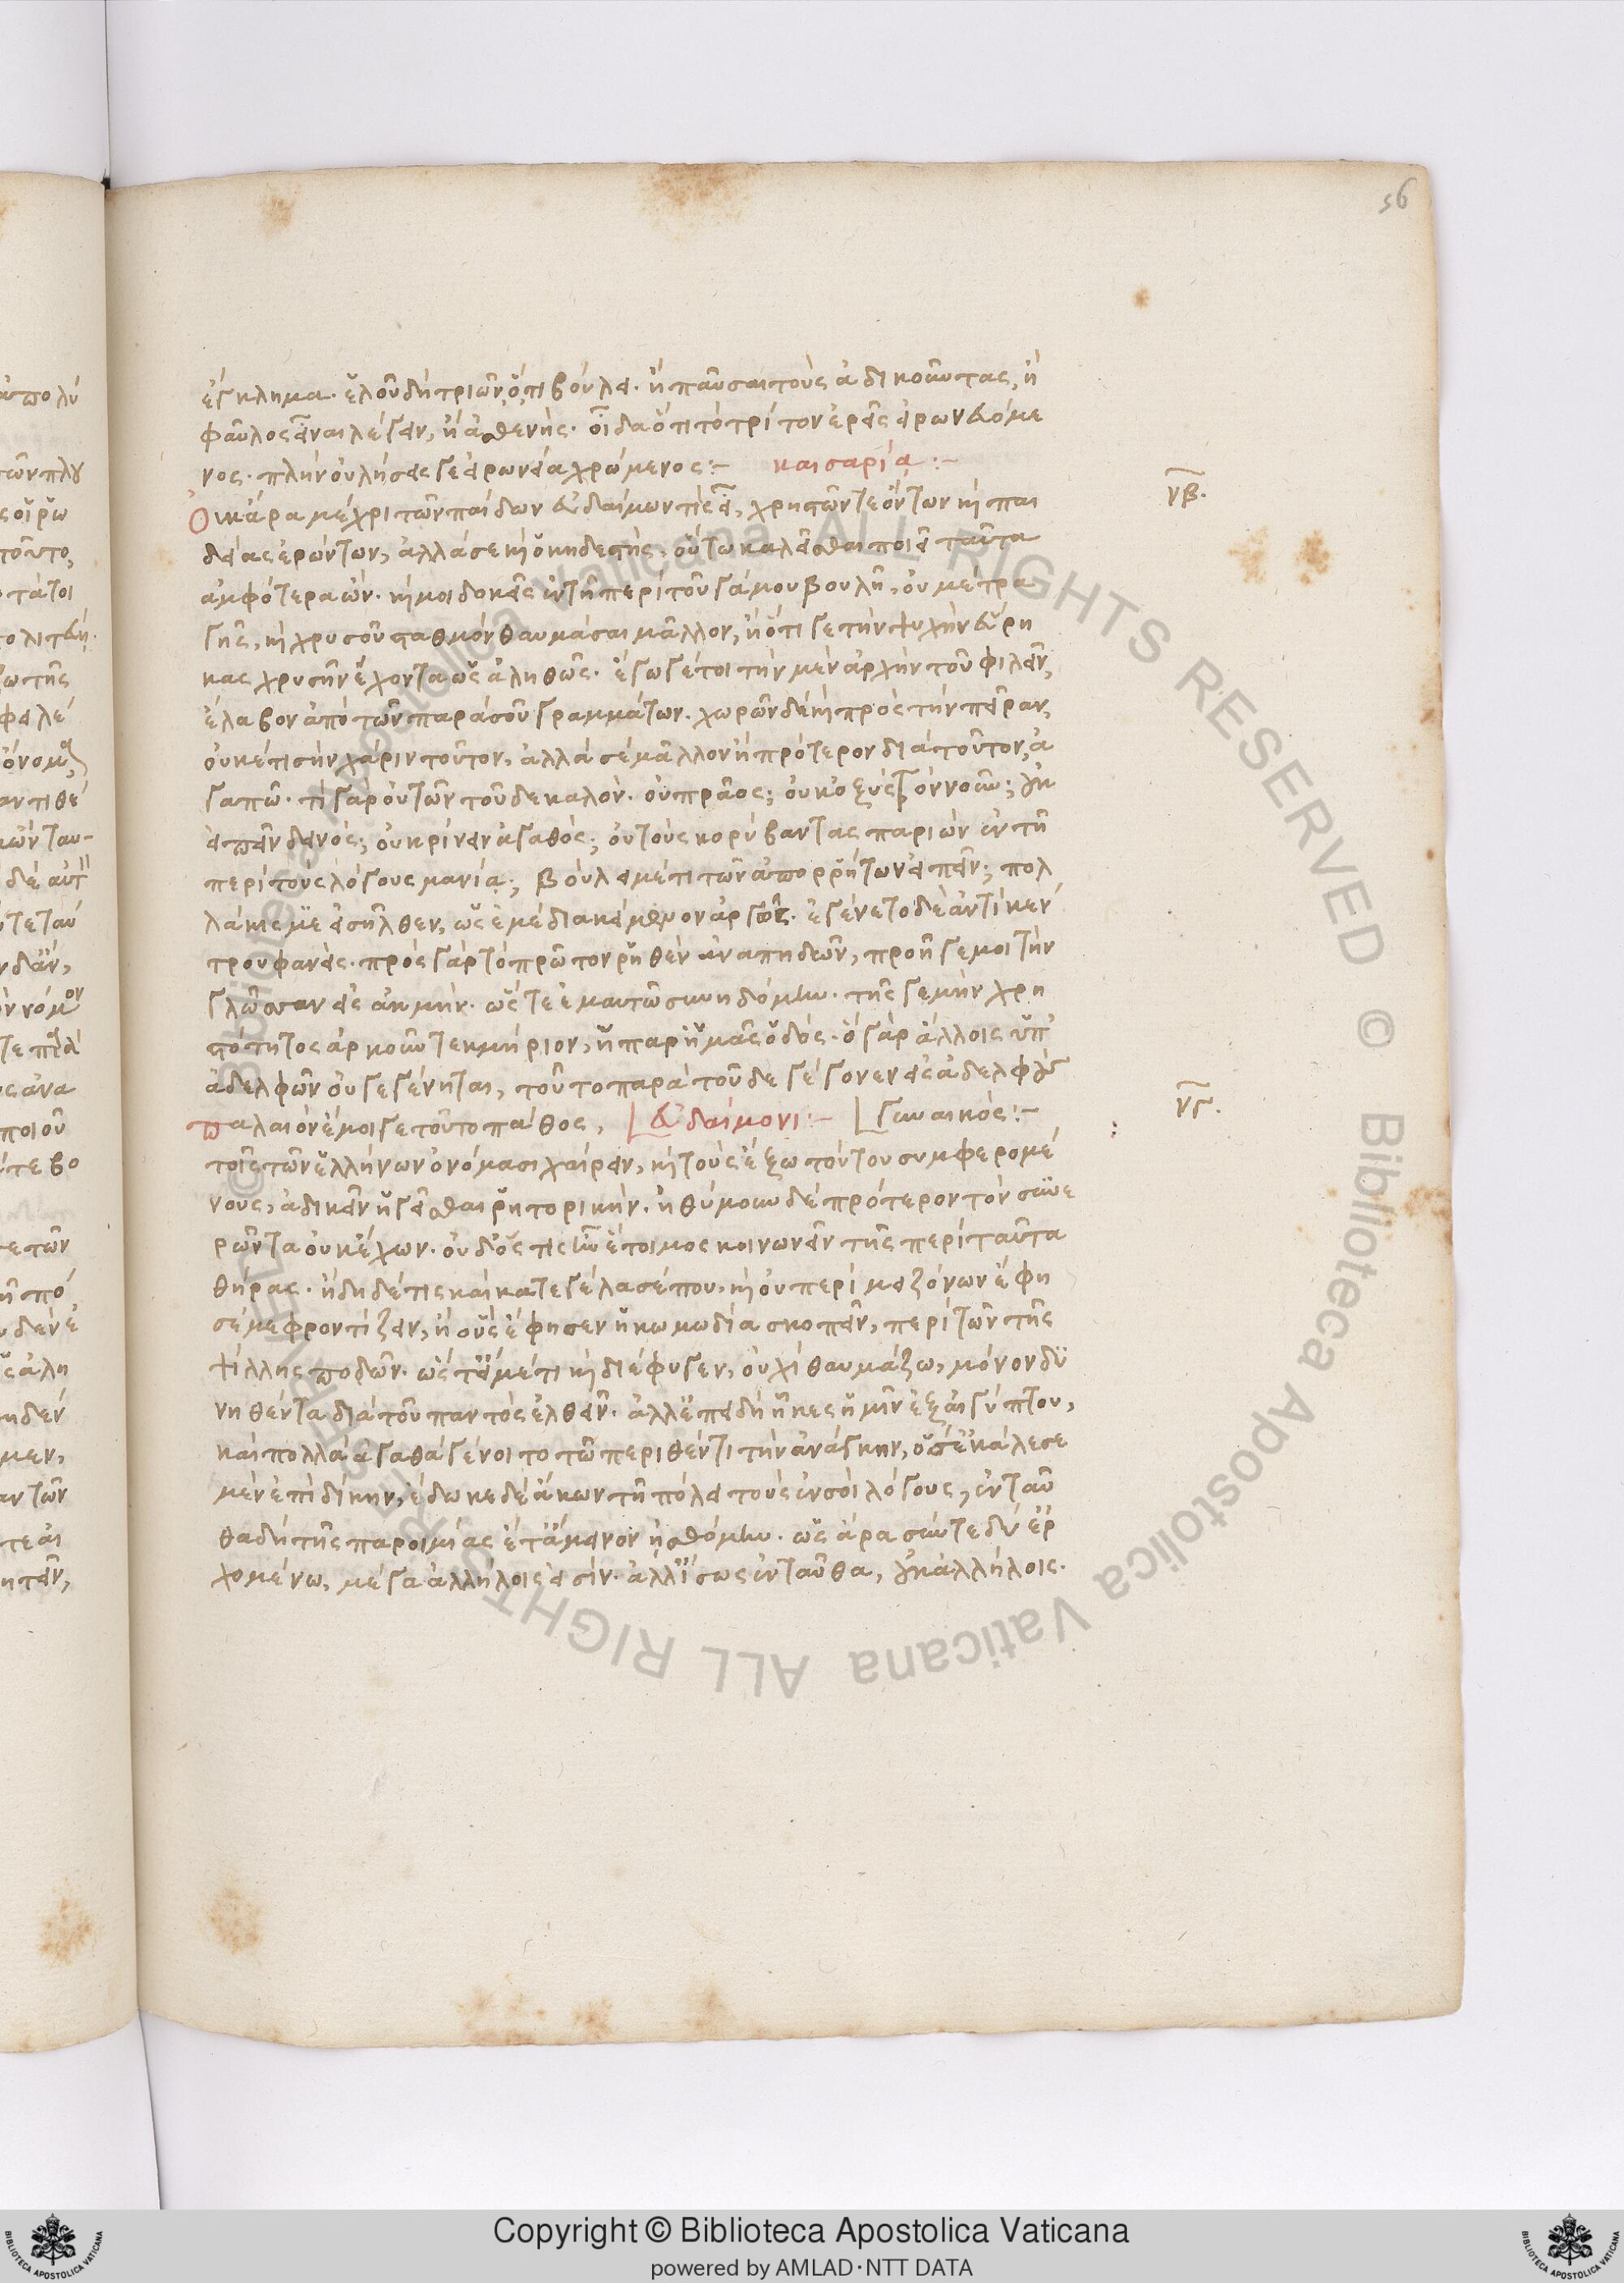 56
ἔγκλημα. ἑλοῦ δὴ τριῶν ὅτι βούλει. ἢ παῦσαι τοὺς ἀδικοῦντας, ἢ
φαῦλος εἶναι λέγειν, ἢ ἀσθενής. οἶδα ὅτι τὸ τρίτον ἐρεῖς εἰρωνευόμε
νος. πλὴν οὐ λήσεις γε εἰρωνεία χρώμενος :- καισαρίῳ :-
νβ.
Οὐκ ἄρα μέχρι τῶν παίδων εὐδαίμων τις εἶ, χρηστῶν τε ὄντων καὶ παι
δείας ἐρώντων, ἀλλά σε καὶ ὁ κηδεστὴς, οὕτω καλεῖσθαι ποιεῖ ταῦτα
ἀμφότερα ὤν. καί μοι δοκεῖς ἐν τῇ περὶ τοῦ γάμου βουλῇ, οὐ μέτρα
γῆς, καὶ χρυσοῦ σταθμὸν θαυμάσαι μᾶλλον, ἢ ὅτι γε τὴν ψυχὴν εὕρη
κας χρυσῆν ἔχοντα ὡς ἀληθῶς. ἐγώ γέ τοι τὴν μὲν ἀρχὴν τοῦ φιλεῖν,
ἔλαβον ἀπὸ τῶν παρὰ σοῦ γραμμάτων. χωρῶν δὲ καὶ πρὸς τὴν πεῖραν,
οὐκέτι σὴν χάριν τοῦτον, ἀλλὰ σὲ μᾶλλον ἢ πρότερον διὰ τοῦτον, ἀ
γαπῶ. τί γὰρ οὐ τῶν τοῦδε καλόν. οὐ πρᾶος; οὐκ ὀξὺς τὸν νοῦν; οὐκ
εἰπεῖν δεινός; οὐ κρίνειν ἀγαθός; οὐ τοὺς κορύβαντας παριὼν ἐν τῇ
περὶ τοὺς λόγους μανίᾳ; βούλει μέ τι τῶν ἀπορρήτων εἰπεῖν; πολ
λάκις με εἰσῆλθεν, ὡς ἐμὲ διακείμενον ἀργῶς. ἐγένετο δὲ ἀντὶ κέν
τρου φανείς. πρὸς γὰρ τὸ πρῶτον ῥηθὲν ἀναπηδῶν, προῆγέ μοι τὴν
γλῶτταν εἰς ἀκμήν. ὥστε ἐμαυτῷ συνηδόμην. τῆς γε μὴν χρη
στότητος ἀρκοῦν τεκμήριον, ἡ παρ' ἡμᾶς ὁδός. ὃ γὰρ ἄλλοις ὑπ'
ἀδελφῶν οὐ γεγένηται, τοῦτο παρὰ τοῦδε γέγονεν εἰς ἀδελφὴν
Παλαιὸν ἐμοί γε τοῦτο πάθος, εὐδαίμονι :- γυναικός :-
νγ.
τοῖς τῶν ἑλλήνων ὀνόμασι χαίρειν, καὶ τοὺς ἔξω τούτου συμφερομέ
νους, ἀδικεῖν ἡγεῖσθαι ῥητορικήν. ἠθύμουν δὲ πρότερον τὸν συνε
ρῶντα οὐκ ἔχων. οὐδ' ὅστις ἦν ἕτοιμος κοινωνεῖν τῆς περὶ ταῦτα
θήρας. ἤδη δέ τις καὶ κατεγέλασέ που, καὶ οὐ περὶ μειζόνων ἔφη
σέ με φροντίζειν, ἢ οὓς ἔφησεν ἡ κωμωδία σκοπεῖν, περὶ τῶν τῆς
ψίλλης ποδῶν. ὥστ' εἰ μέ τι καὶ διέφυγεν, οὐχὶ θαυμάζω, μόνον δυ
νηθέντα διὰ τοῦ παντὸς ἐλθεῖν. ἀλλ' ἐπειδὴ ἧκες ἡμῖν ἐξ αἰγύπτου,
καὶ πολλὰ ἀγαθὰ γένοιτο τῷ περιθέντι τὴν ἀνάγκην, ὅς σε ἐκάλεσε
μὲν ἐπὶ δίκην, ἔδωκε δὲ ἄκων τῇ πόλει τοὺς ἐν σοὶ λόγους, ἐνταῦ
θα δὴ τῆς παροιμίας ἐπ' ἄμεινον ᾐσθόμην. ὡς ἄρα σύν τε δύ' ἐρ
χομένω, μέγα ἀλλήλοις εἰσίν. ἀλλ' ἴσως ἐνταῦθα, οὐκ ἀλλήλοις.